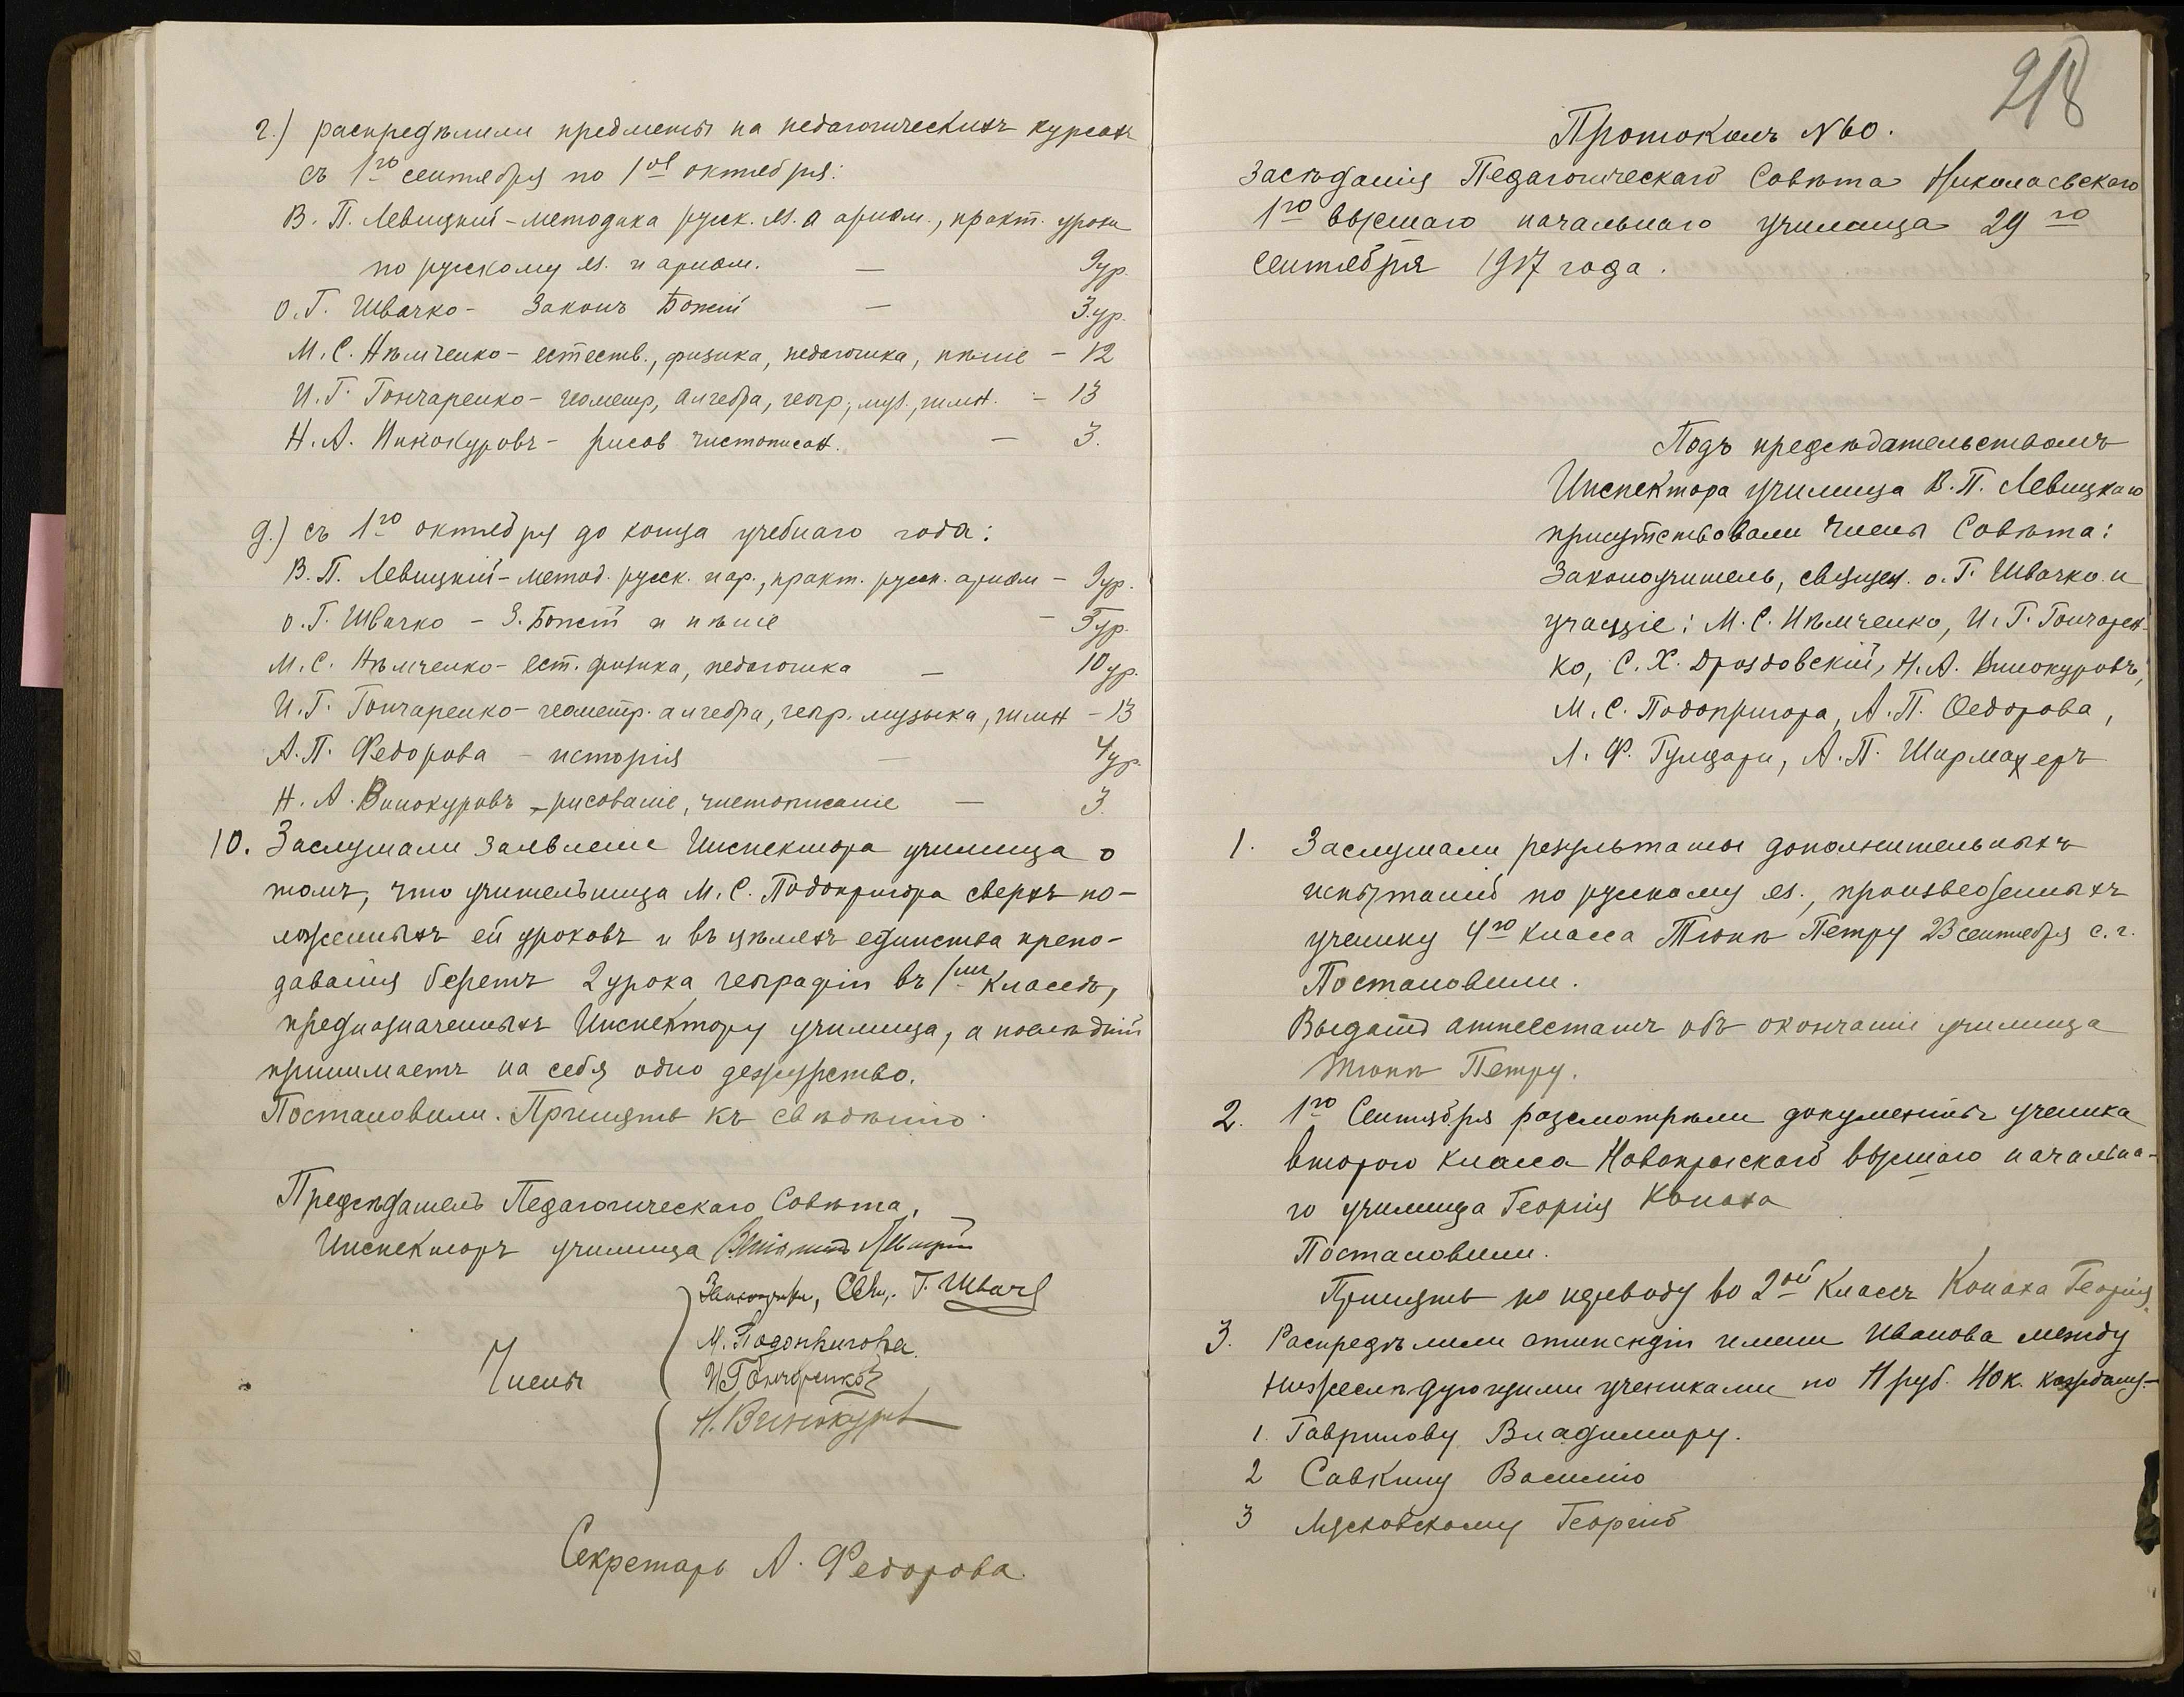 г.) распредѣлили предметы на педагогическихъ курсахъ
съ 1го сентября по 1ое октября:
В. П. Левицкій – методика русск. яз. и ариѳм., практ. уроки
по русскому яз. и ариѳм. — 9 ур.
о. Г. Швачко – Законъ Божій — 3 ур.
М. С. Нѣмченко – естеств., физика, педагогика, пѣніе – 12
И. Г. Гончаренко – геометр, алгебра, геогр., муз., гимн. – 13
Н. А. Винокуровъ – рисов чистописан. — 3.
д.) съ 1го октября до конца учебнаго года:
В. П. Левицкій – метод. русск. и ар., практ. русск. ариѳм – 9 ур.
о. Г. Швачко – З. Божій и пѣніе – 5 ур.
М. С. Нѣмченко – ест. физика, педагогика — 10 ур.
И. Г. Гончаренко – геометр. алгебра, геогр. музыка, гимн – 13
А. П. Федорова – исторія — 4 ур.
Н. А. Винокуровъ – рисованіе, чистописаніе — 3.
10. Заслушали заявленіе Инспектора училища о
томъ, что учительница М. С. Подопригора сверхъ по-
ложенныхъ ей уроковъ и въ цѣляхъ единства препо-
даванія беретъ 2 урока географіи въ 1мъ классѣ,
предназначенныхъ Инспектору училища, а послѣдній
принимаетъ на себя одно дежурство.
Постановили. Принять къ свѣдѣнію.
Предсѣдатель Педагогическаго Совѣта,
Инспекторъ училища
Г. Швач
М. Подопригора.
Члены И Гончаренко
Н. Винокуровъ
Секретарь А. Федорова.
218
Протоколъ № 60.
Засѣданія Педагогическаго Совѣта Николаевскаго
1го высшаго начальнаго училища 29го
сентября 1917 года.
Подъ предсѣдательствомъ
Инспектора училища В. П. Левицкаго
присутствовали члены Совѣта:
Законоучитель, священ. о. Г. Швачко и
учащіе: М. С. Нѣмченко, И. Г. Гончарен-
ко, С. Х. Дроздовскій, Н. А. Винокуровъ,
М. С. Подопригора, А. П. Ѳедорова,
Л. Ф. Гумцари, А. П. Ширмахеръ
1. Заслушали результаты дополнительныхъ
испытаній по русскому яз., произведенныхъ
ученику 4го класса Тюпѣ Петру 23 сентября с. г.
Постановили.
Выдать аттестатъ объ окончаніи училища
Тюпѣ Петру.
2. 1го Сентября разсмотрѣли документы ученика
второго класса Новопражскаго высшаго начальна-
го училища Георгія Конаха
Постановили.
Принять по переводу во 2ой классъ Конаха Георгія.
3. Распредѣлили стипендіи имени Иванова между
нижеслѣдующими учениками по 11 руб. 40 к. каждому.–
1. Гаврилову Владимиру.
2 Савкину Василію
3 Георгію